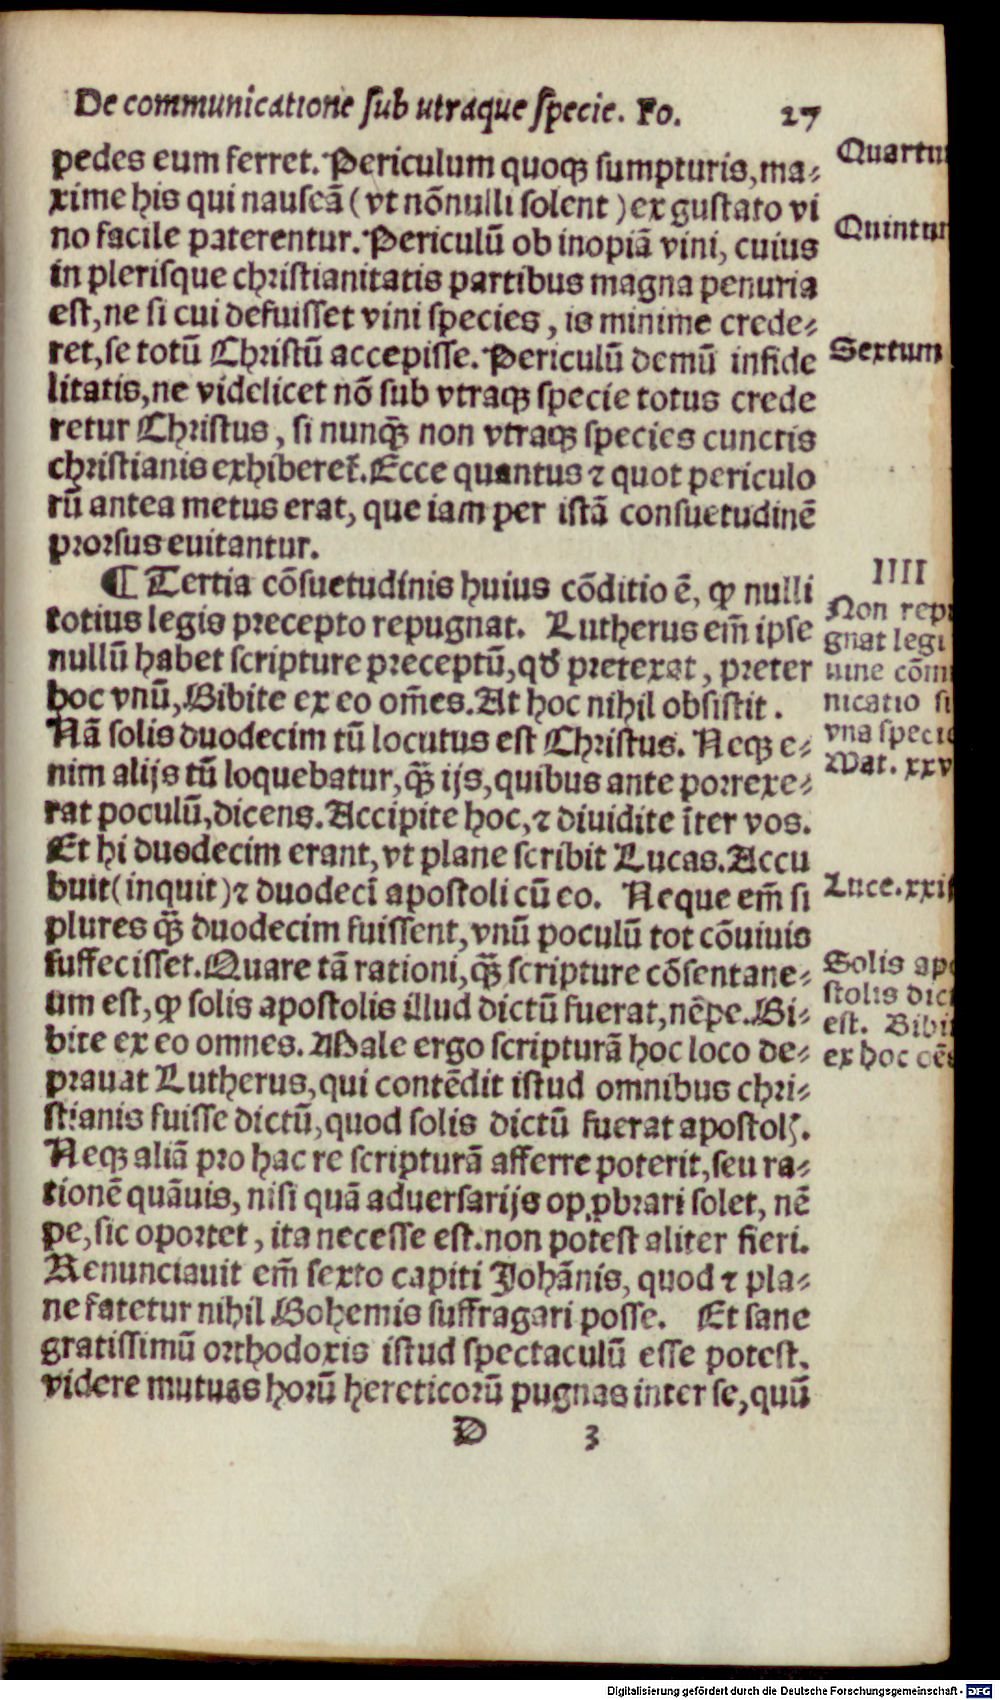 De communicatione sub utraque specie. Fo. 27
pedes eum ferret. Periculum quoqꝫ sumpturis, ma⸗
xime his qui nauseā (vt nōnulli solent) ex gustato vi
no facile paterentur. Periculū ob inopiā vini, cuius
in plerisque christianitatis partibus magna penuria
est, ne si cui defuisset vini species, is minime crede⸗
ret, se totū Christū accepisse. Periculū demū infide
litatis, ne videlicet nō sub vtraqꝫ specie totus crede
retur Christus, si nunqꝫ̄ non vtraqꝫ species cunctis
christianis exhiberet̄. Ecce quantus ⁊ quot periculo
rū antea metus erat, que iam per istā consuetudinē
prorsus euitantur.
¶ Tertia cōsuetudinis huius cōditio ē, ꝙ nulli
totius legis precepto repugnat. Lutherus em̄ ipse
nullū habet scripture preceptū, qđ pretexat, preter
hoc vnū, Bibite ex eo om̄es. At hoc nihil obsistit.
Nā solis duodecim tū locutus est Christus. Neqꝫ e⸗
nim alijs tū loquebatur, qꝫ̄ ijs, quibus ante porrexe⸗
rat poculū, dicens. Accipite hoc, ⁊ diuidite īter vos.
Et hi duodecim erant, vt plane scribit Lucas. Accu
buit (inquit) ⁊ duodecī apostoli cū eo. Neque em̄ si
plures qꝫ̄ duodecim fuissent, vnū poculū tot cōuiuis
suffecisset. Quare tā rationi, qꝫ̄ scripture cōsentane⸗
um est, ꝙ solis apostolis illud dictū fuerat, nēpe. Bi⸗
bite ex eo omnes. Male ergo scripturā hoc loco de⸗
prauat Lutherus, qui contēdit istud omnibus chri⸗
stianis fuisse dictū, quod solis dictū fuerat apostolꝭ.
Neqꝫ aliā pro hac re scripturā afferre poterit, seu ra⸗
tionē quāuis, nisi quā aduersarijs opꝓbrari solet, nē
pe, sic oportet, ita necesse est. non potest aliter fieri.
Renunciauit em̄ sexto capiti Johānis, quod ⁊ pla⸗
ne fatetur nihil Bohemis suffragari posse. Et sane
gratissimū orthodoxis istud spectaculū esse potest.
videre mutuas horū hereticorū pugnas inter se, quū
D 3
Quartu
Quintu
Sextum
IIII
Non rep
gnat legi
uine cōm
nicatio si
vna specie
Mat. xxv
Luce. xxij
Solis apo
stolis dict
est. Bibit
ex hoc oēs
Digitalisierung gefördert durch die Deutsche Forschungsgemeinschaft - DFG